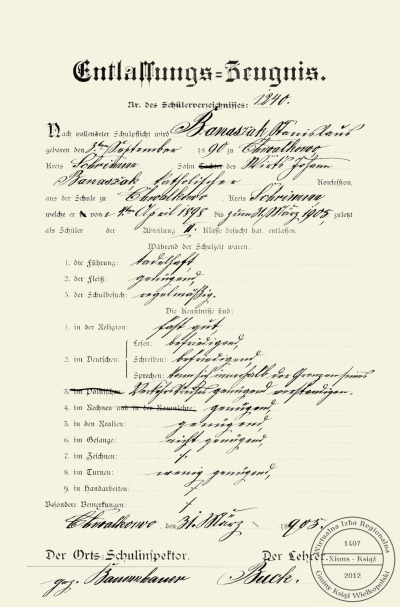 Entlassungs=Zeugnis.
Nr. des Schülerverzeichnisses: 1240.
Nach vollendeter Schulpflicht wird Banaszak, Stanislaus
geboren den 3ten September 1890 zu Chwalkowo
Kreis Schrimm Sohn Tochter des Wirts Johann
Banaszak katholischer Konfession,
aus der Schule zu Chwalkowo, Kreis Schrimm
welche er von 1. April 1898 bis zum 31. März 1905, zuletzt
als Schüler der Abteilung II. Klasse besucht hat, entlassen.
Während der Schulzeit waren:
1. die Führung: tadelhaft
2. der Fleiß: genügend,
3. der Schulbesuch: regelmäßig.
Die Kenntnisse sind:
1. in der Religion: fast gut,
2. im Deutschen:
Lesen: befriedigend,
Schreiben: befriedigend,
Sprechen: kann sich innerhalb der Grenzen seines
3. im Polnischen: genügend verständigen.
4. im Rechnen und in der Raumlehre: genügend,
5. in den Realien: genügend,
6. im Gesange: nicht genügend,
7. im Zeichnen: /.
8. im Turnen: wenig genügend,
9. in Handarbeiten: /.
Besondere Bemerkungen: /.
Chwalkowo den 31. März 1905.
Der Orts-Schulinspektor. Der Lehrer
gez. Baumhauer Buck.
Wirtualna Izba Regionalna
1407
Xions - Książ
2012
Gminy Książ Wielkopolski